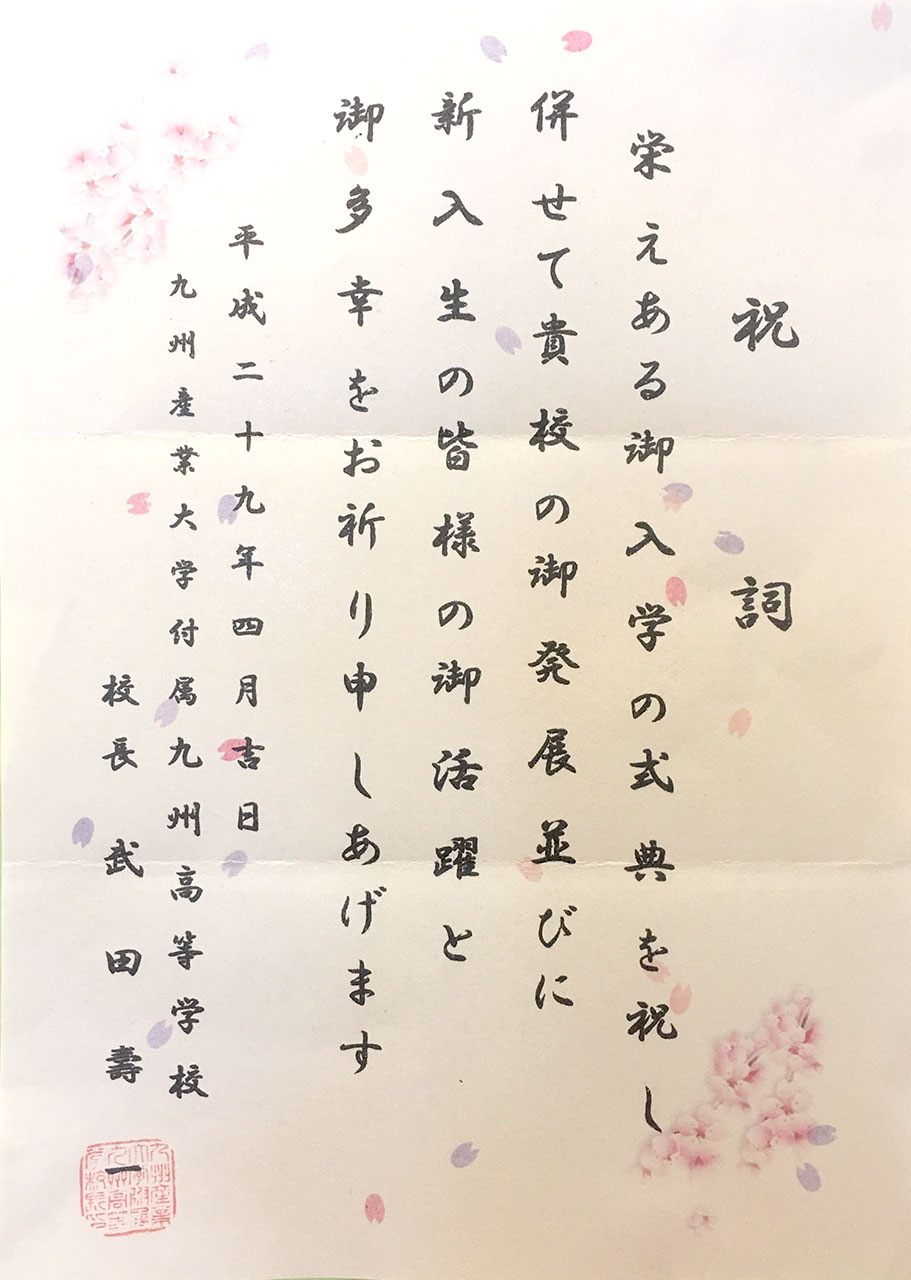 祝詞
栄えある御入学の式典を祝し
併せて貴校の御発展並びに
新入生の皆様の御活躍と
御多幸をお祈り申しあげます
平成二十九年四月吉日
九州産業大学付属九州高等学校
校長 武田壽一